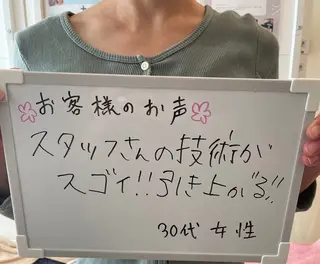 お客様のお声
スタッフさんの技術が
スゴイ!!引き上がる!!
30代 女性